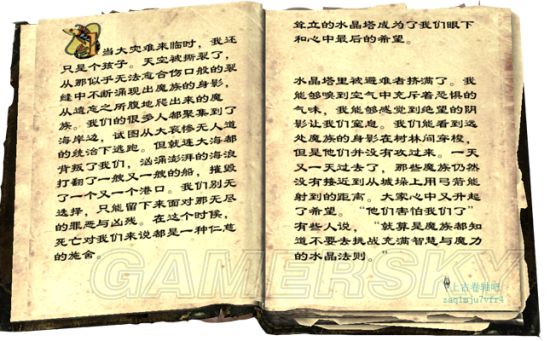 当大灾难来临时，我还
只是个孩子。天空被撕裂了，
从那似乎无法愈合伤口般的裂
缝中不断涌现出魔族的身影，
从遗忘之所腹地爬出来的魔
族。我们的很多人都聚集到了
海岸边，试图从大哀惨无人道
的统治下逃跑。但就连大海都
背叛了我们，汹涌澎湃的海浪
打翻了一艘又一艘的船，摧毁
了一个又一个港口。我们别无
选择，只能留下来面对那无尽
的罪恶与凶残。在这个时候，
死亡对我们来说都是一种仁慈
的施舍。
耸立的水晶塔成为了我们眼下
和心中最后的希望。
水晶塔里被避难者挤满了。我
能够嗅到空气中充斥着恐惧的
气味，我能够感觉到绝望的阴
影让我们窒息。我们能看到远
处魔族的身影在树林间穿梭，
但是他们并没有攻过来。一天
又一天过去了，那些魔族仍然
没有接近到从城垛上用弓箭能
射到的距离。大家心中又升起
了希望。“他们害怕我们了”
有些人说，“就算是魔族都知
道不要去挑战充满智慧与魔力
的水晶法则。”
GAMERSKY
上古卷轴吧
zaqtmju7vfr4